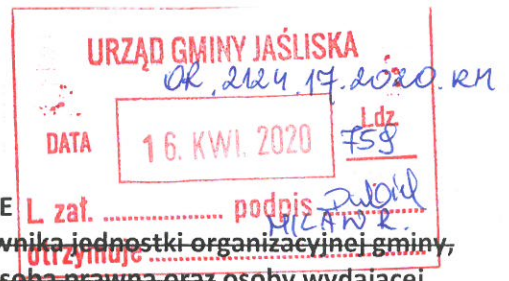 URZĄD GMINY JAŚLISKA
OR.2124.17.2020.RM
DATA
16. KWI. 2020
Ldz.
759
E
L. zał. .................. podpis
MILAN R.
wnika jednostki organizacyjnej gminy,
otrzymuje
sobą prawną oraz osoby wydającej